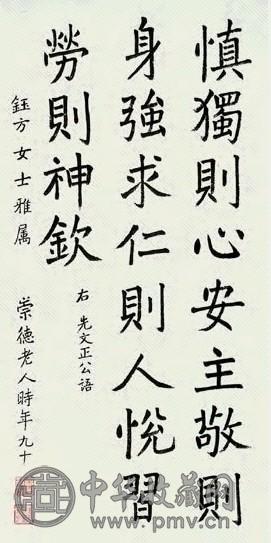 慎獨則心安主敬則
身強求仁則人悅習
勞則神欽
右 先文正公語
鈺方女士雅属
崇德老人時年九十
中华收藏网
www.pmv.cn